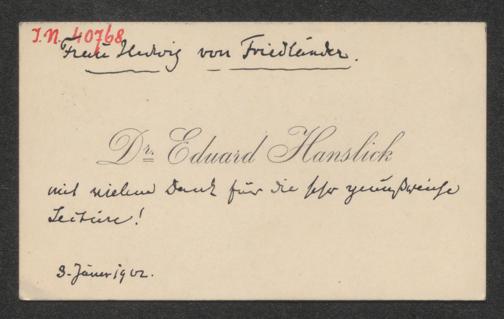 I.N. 40768
Frau Hedwig von Friedländer.
Dr. Eduard Hanslick
mit vielem Dank für die sehr genußreiche
Lectüre!
3. Jäner 1902.